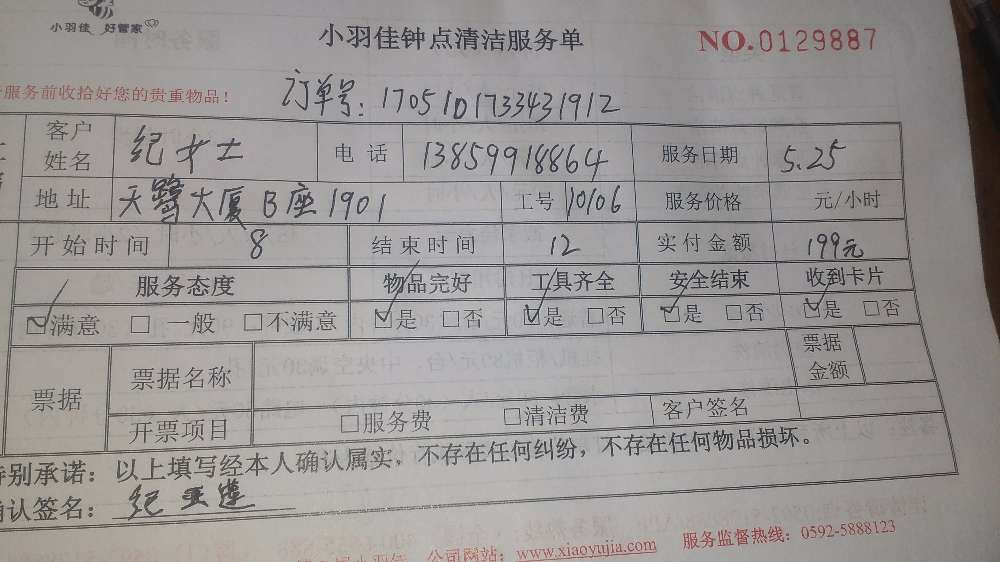 小羽佳 好管家
小羽佳钟点清洁服务单
NO.0129887
服务前收拾好您的贵重物品！
订单号：1705101733431912
客户姓名 纪女士 电话 13859918864 服务日期 5.25
地址 天鹭大厦B座1901 工号 10106 服务价格 元/小时
开始时间 8 结束时间 12 实付金额 199元
服务态度 物品完好 工具齐全 安全结束 收到卡片
☑满意 □一般 □不满意 ☑是 □否 ☑是 □否 ☑是 □否 ☑是 □否
票据 票据名称 票据金额
开票项目 □服务费 □清洁费 客户签名
特别承诺：以上填写经本人确认属实，不存在任何纠纷，不存在任何物品损坏。
确认签名：纪亚莲
公司网站：www.xiaoyujia.com 服务监督热线：0592-5888123